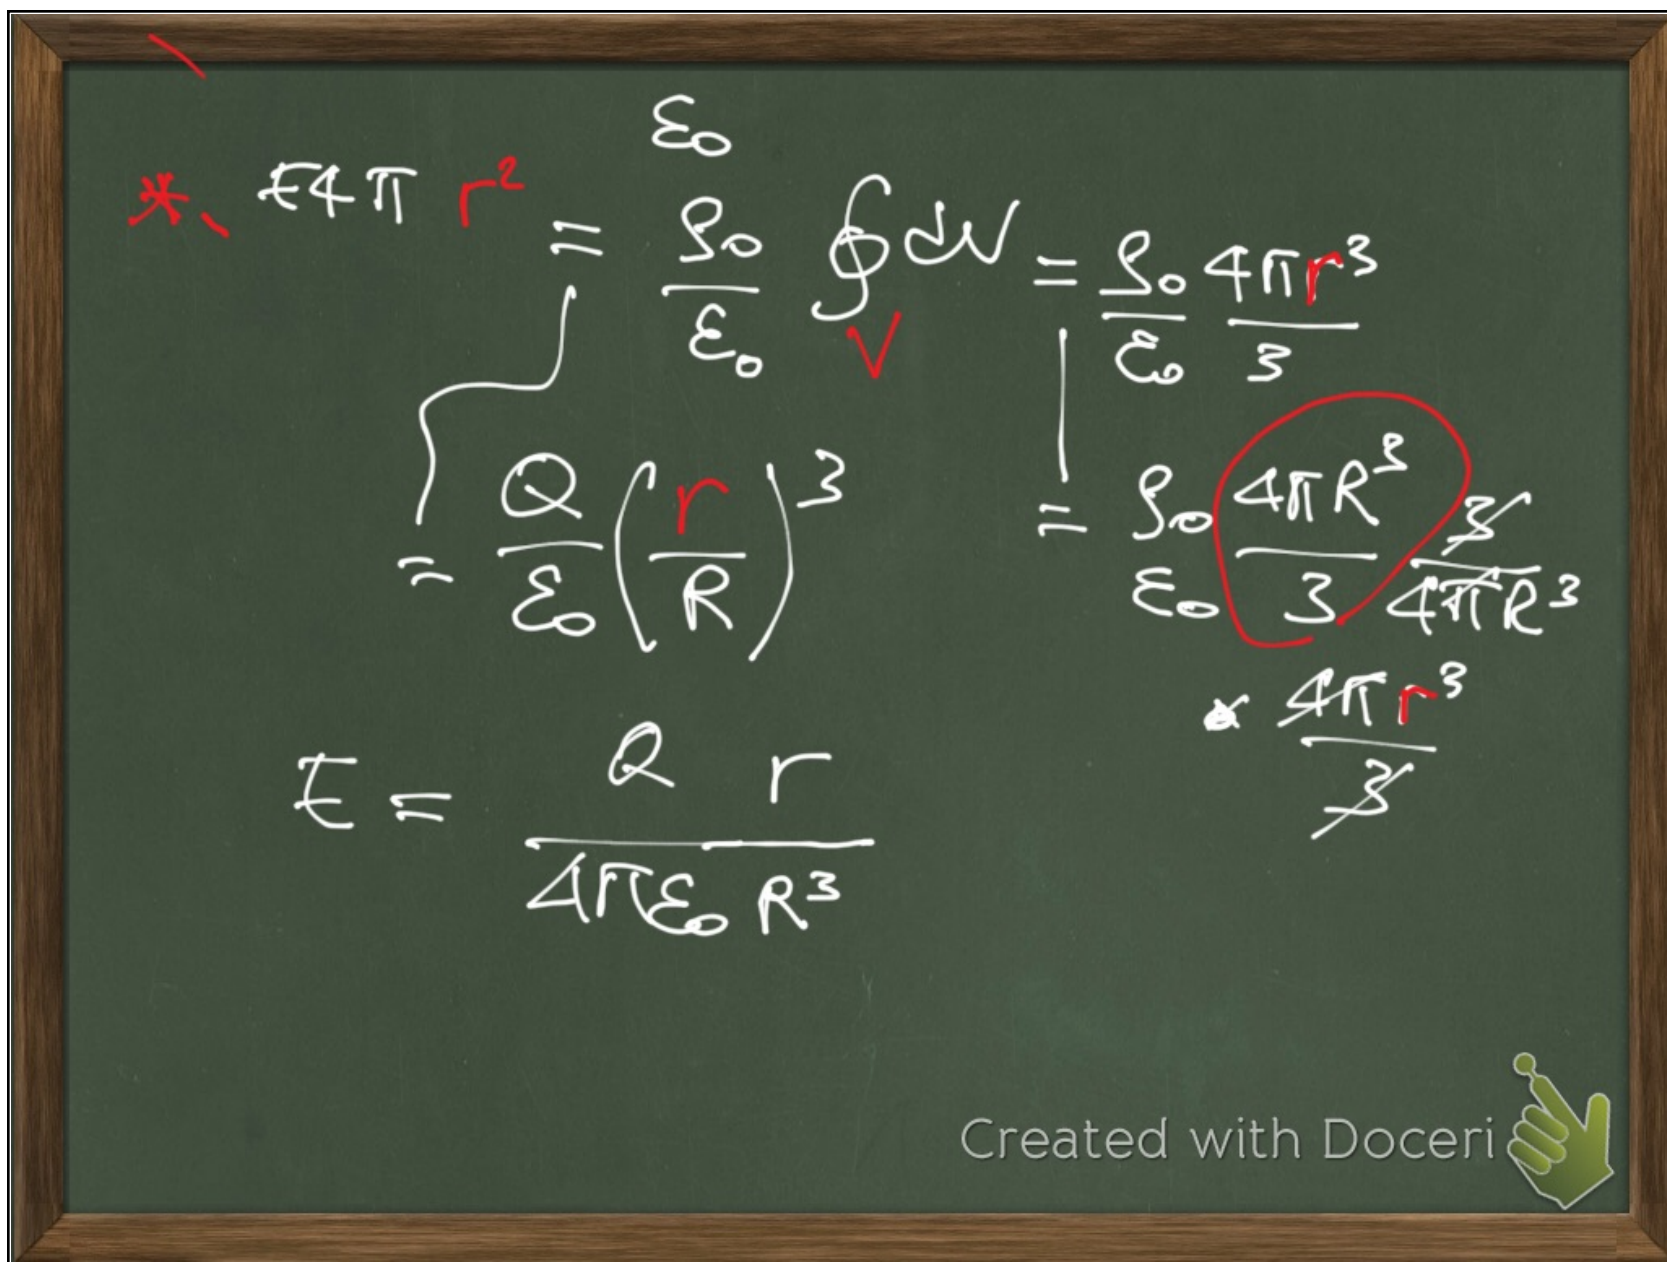 ε₀
*. E4π r² = ρ₀/ε₀ ∮_V dV = ρ₀/ε₀ 4πr³/3
= Q/ε₀ (r/R)³
= ρ₀/ε₀ 4πR³/3 3/4πR³
* 4πr³/3
E = Q r / 4πε₀ R³
Created with Doceri